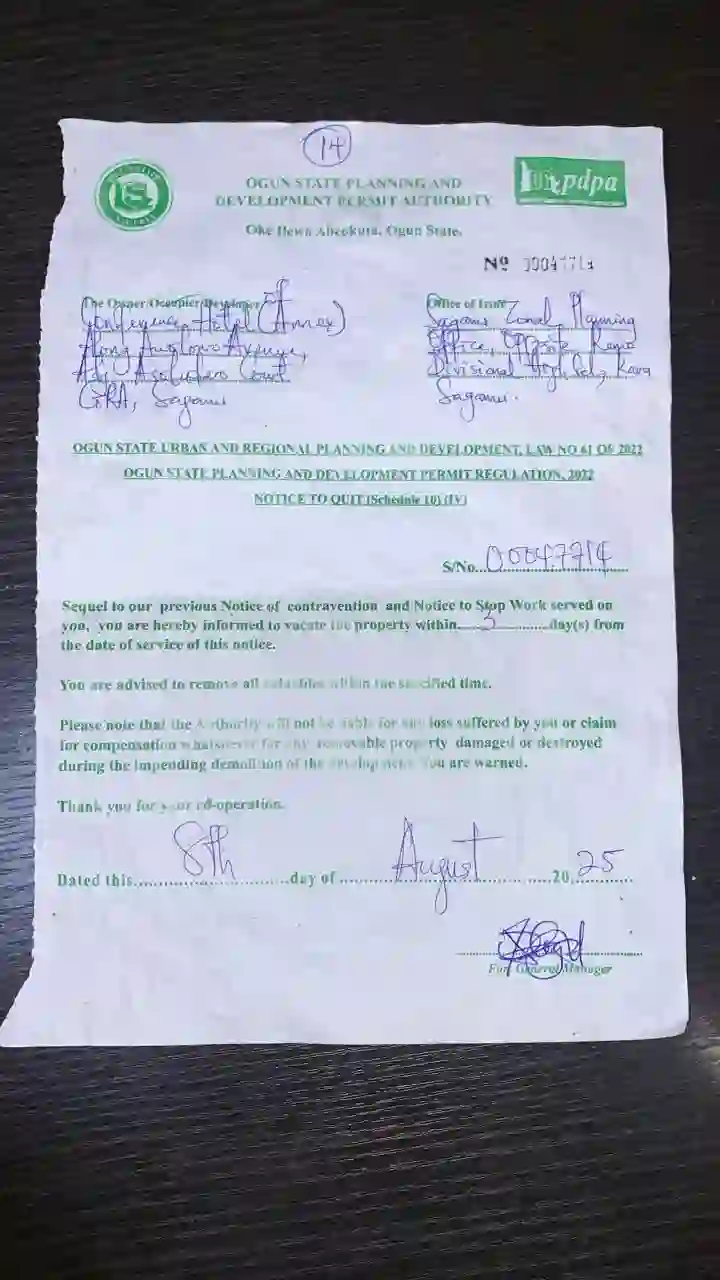 14
OGUN STATE PLANNING AND
DEVELOPMENT PERMIT AUTHORITY
pdpa
Oke Ilewo Abeokuta, Ogun State.
Nº 00047714
The Owner/Occupier/Developer of
Office of Issue
Conference Hotel (Annex)
Sagamu Zonal Planning
Along Avenue,
Office, Opposite Remo
Court
Divisional High Sch, Kara
GRA, Sagamu
Sagamu.
OGUN STATE URBAN AND REGIONAL PLANNING AND DEVELOPMENT, LAW NO 61 OF 2022
OGUN STATE PLANNING AND DEVELOPMENT PERMIT REGULATION, 2022
NOTICE TO QUIT (Schedule 10) (IV)
S/No...00047714
Sequel to our previous Notice of contravention and Notice to Stop Work served on
you, you are hereby informed to vacate the property within......3......day(s) from
the date of service of this notice.
You are advised to remove all within the specified time.
Please note that the Authority will not be liable for any loss suffered by you or claim
for compensation whatsoever for any removable property damaged or destroyed
during the impending demolition of the development. You are warned.
Thank you for your co-operation.
Dated this......8th......day of......August......20.25
For: General Manager